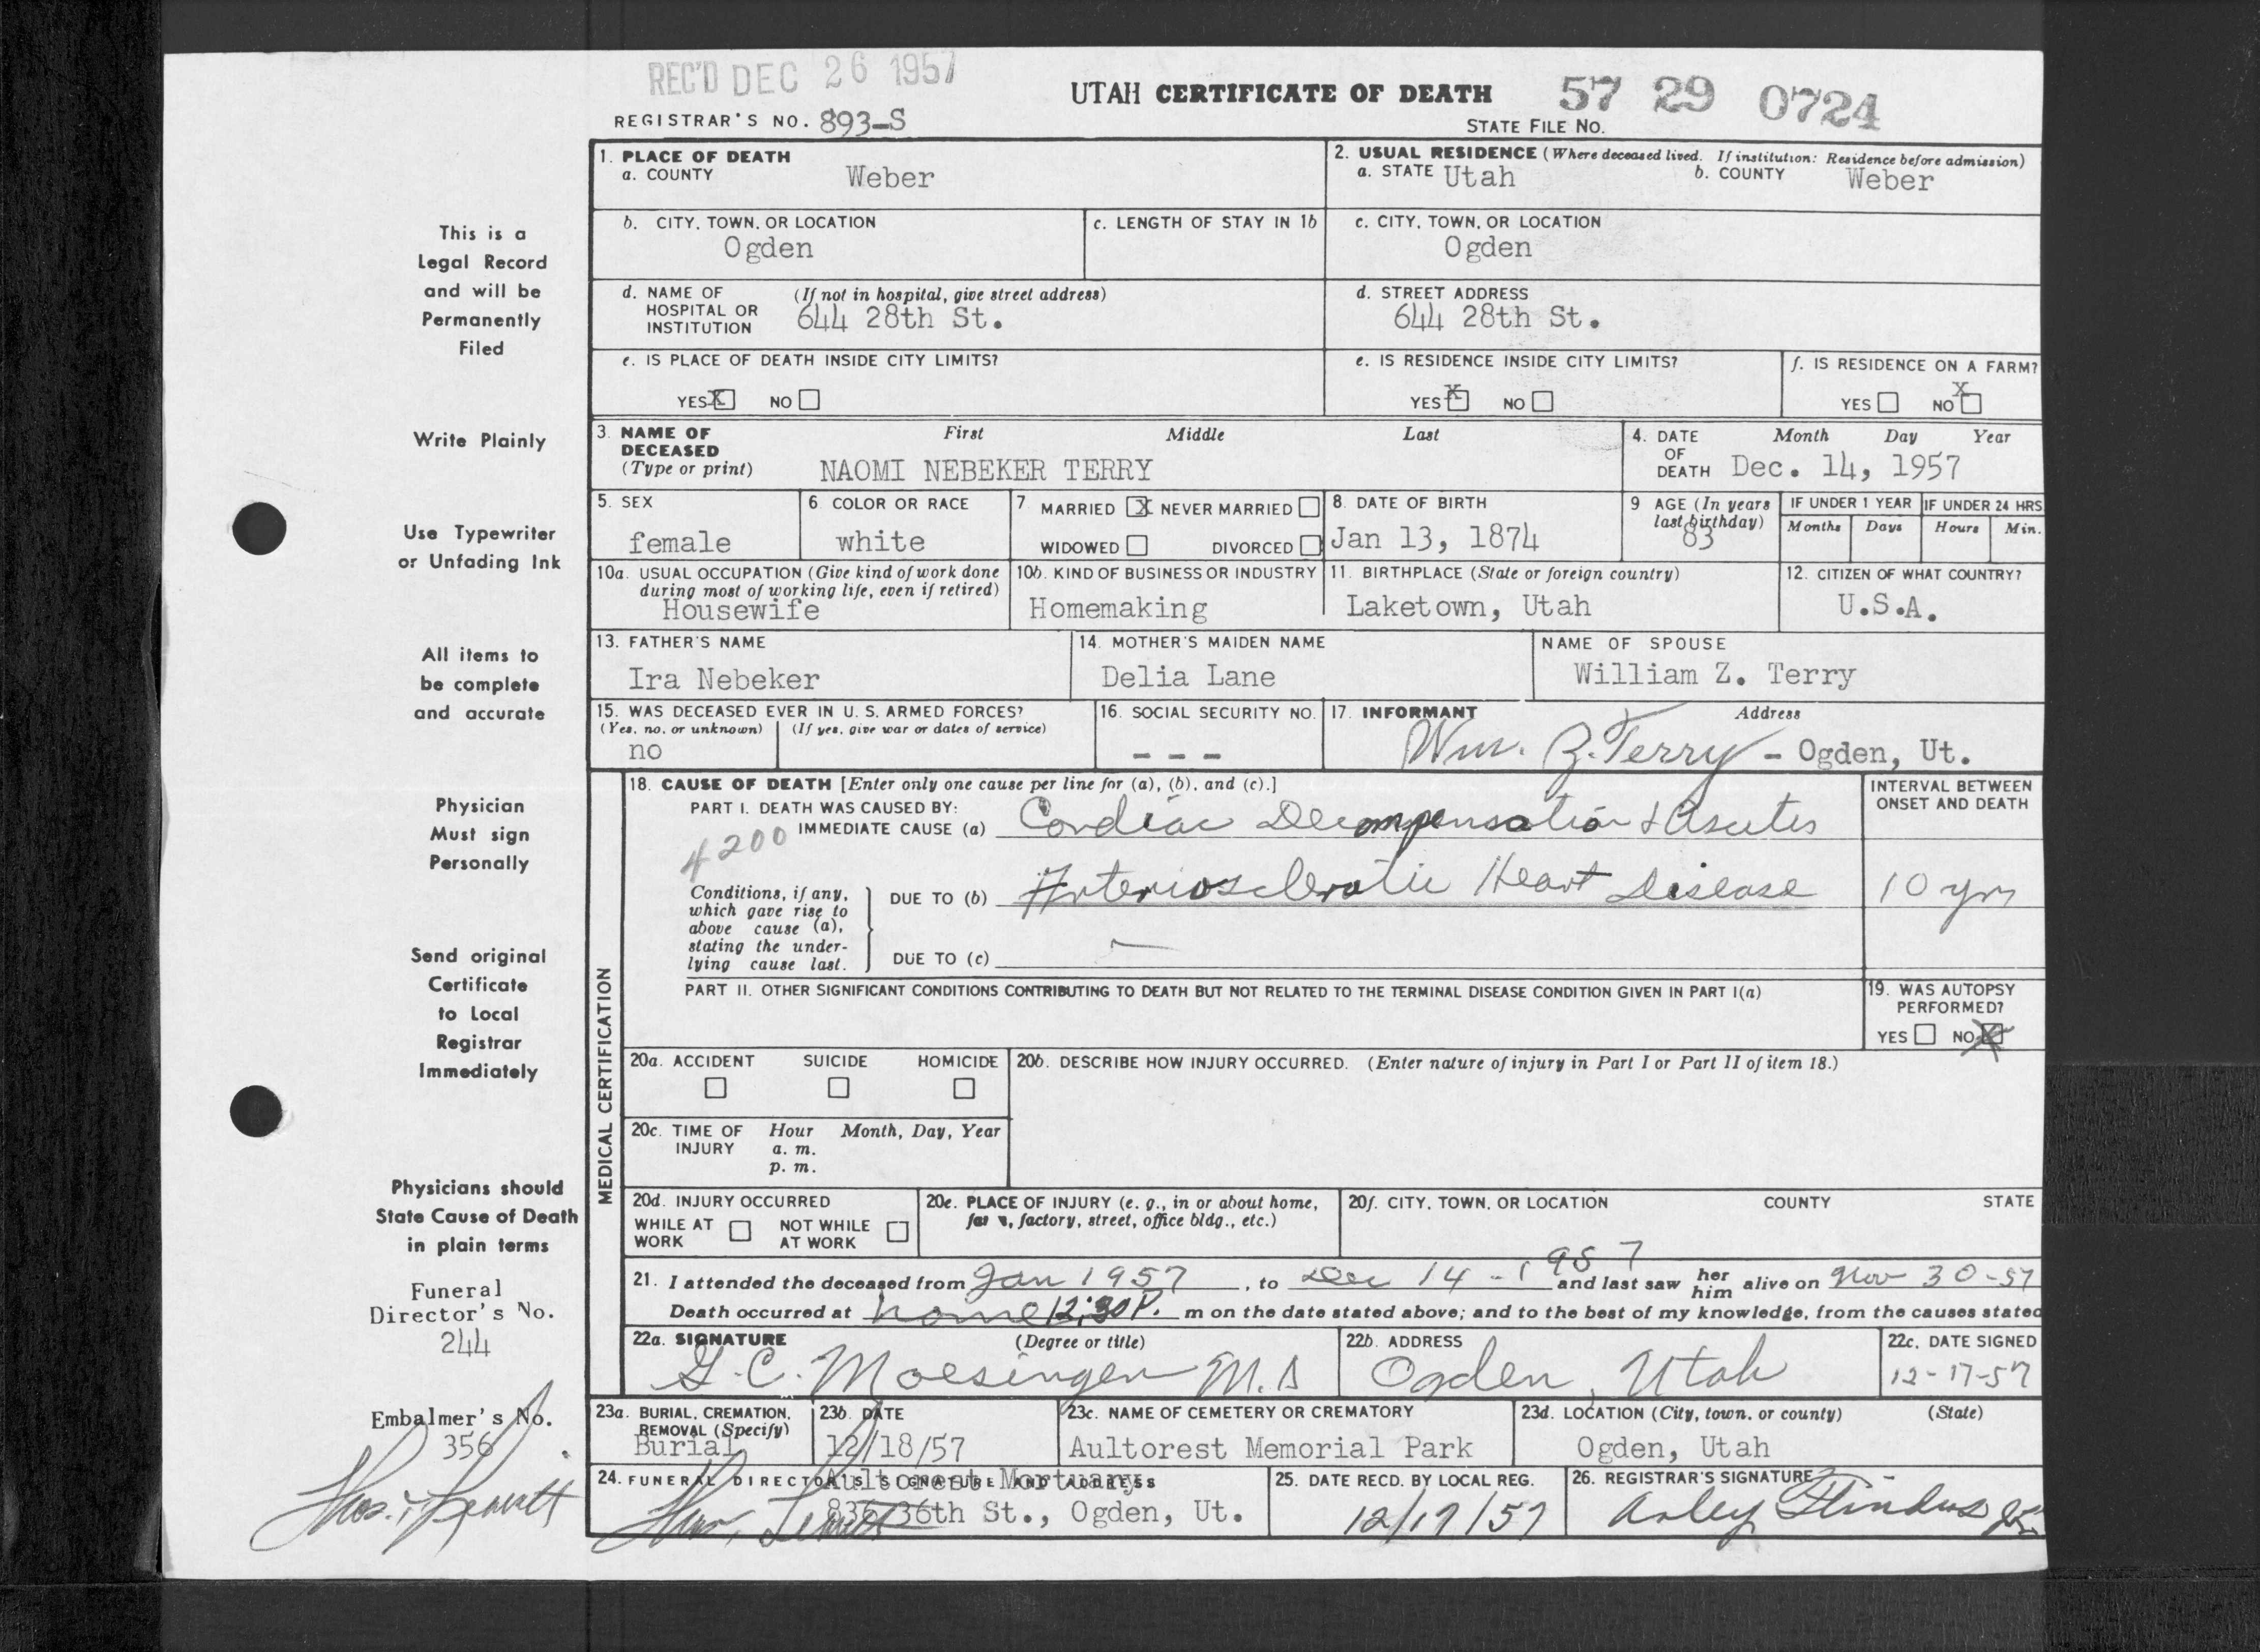 REC'D DEC 26 1957
UTAH CERTIFICATE OF DEATH 57 29 0724
REGISTRAR'S NO. 893-S STATE FILE NO.
This is a
Legal Record
and will be
Permanently
Filed
Write Plainly
Use Typewriter
or Unfading Ink
All items to
be complete
and accurate
Physician
Must sign
Personally
Send original
Certificate
to Local
Registrar
Immediately
Physicians should
State Cause of Death
in plain terms
Funeral
Director's No.
244
Embalmer's No.
356
1. PLACE OF DEATH
a. COUNTY Weber
2. USUAL RESIDENCE (Where deceased lived. If institution: Residence before admission)
a. STATE Utah b. COUNTY Weber
b. CITY, TOWN, OR LOCATION
Ogden
c. LENGTH OF STAY IN 1b
c. CITY, TOWN, OR LOCATION
Ogden
d. NAME OF (If not in hospital, give street address)
HOSPITAL OR
INSTITUTION 644 28th St.
d. STREET ADDRESS
644 28th St.
e. IS PLACE OF DEATH INSIDE CITY LIMITS?
YES X NO
e. IS RESIDENCE INSIDE CITY LIMITS?
YES X NO
f. IS RESIDENCE ON A FARM?
YES NO X
3. NAME OF First Middle Last
DECEASED
(Type or print) NAOMI NEBEKER TERRY
4. DATE Month Day Year
OF
DEATH Dec. 14, 1957
5. SEX
female
6 COLOR OR RACE
white
7 MARRIED X NEVER MARRIED
WIDOWED DIVORCED
8. DATE OF BIRTH
Jan 13, 1874
9 AGE (In years
last birthday)
83
IF UNDER 1 YEAR IF UNDER 24 HRS
Months Days Hours Min.
10a. USUAL OCCUPATION (Give kind of work done
during most of working life, even if retired)
Housewife
10b. KIND OF BUSINESS OR INDUSTRY
Homemaking
11. BIRTHPLACE (State or foreign country)
Laketown, Utah
12. CITIZEN OF WHAT COUNTRY?
U.S.A.
13. FATHER'S NAME
Ira Nebeker
14. MOTHER'S MAIDEN NAME
Delia Lane
NAME OF SPOUSE
William Z. Terry
15. WAS DECEASED EVER IN U. S. ARMED FORCES?
(Yes, no, or unknown) (If yes, give war or dates of service)
no
16. SOCIAL SECURITY NO.
- - -
17. INFORMANT Address
Wm. Z. Terry - Ogden, Ut.
MEDICAL CERTIFICATION
18. CAUSE OF DEATH [Enter only one cause per line for (a), (b), and (c).]
PART I. DEATH WAS CAUSED BY:
IMMEDIATE CAUSE (a) Cardiac Decompensation & Ascites
4200
INTERVAL BETWEEN
ONSET AND DEATH
Conditions, if any,
which gave rise to
above cause (a),
stating the under-
lying cause last.
DUE TO (b) Arteriosclerotic Heart Disease 10 yrs
DUE TO (c) -
PART II. OTHER SIGNIFICANT CONDITIONS CONTRIBUTING TO DEATH BUT NOT RELATED TO THE TERMINAL DISEASE CONDITION GIVEN IN PART I(a)
19. WAS AUTOPSY
PERFORMED?
YES NO X
20a. ACCIDENT SUICIDE HOMICIDE
20b. DESCRIBE HOW INJURY OCCURRED. (Enter nature of injury in Part I or Part II of item 18.)
20c. TIME OF Hour Month, Day, Year
INJURY a. m.
p. m.
20d. INJURY OCCURRED
WHILE AT NOT WHILE
WORK AT WORK
20e. PLACE OF INJURY (e. g., in or about home,
factory, street, office bldg., etc.)
20f. CITY, TOWN, OR LOCATION COUNTY STATE
21. I attended the deceased from Jan 1957, to Dec 14 - 1957 and last saw her him alive on Nov 30-57
Death occurred at home 12:30 P. m on the date stated above; and to the best of my knowledge, from the causes stated
22a. SIGNATURE (Degree or title)
G. C. Moesinger M.D
22b. ADDRESS
Ogden, Utah
22c. DATE SIGNED
12-17-57
23a. BURIAL, CREMATION,
REMOVAL (Specify)
Burial
23b. DATE
12/18/57
23c. NAME OF CEMETERY OR CREMATORY
Aultorest Memorial Park
23d. LOCATION (City, town, or county) (State)
Ogden, Utah
24. FUNERAL DIRECTOR'S SIGNATURE AND ADDRESS
Aultorest Mortuary
836 36th St., Ogden, Ut.
25. DATE RECD. BY LOCAL REG.
12/17/57
26. REGISTRAR'S SIGNATURE